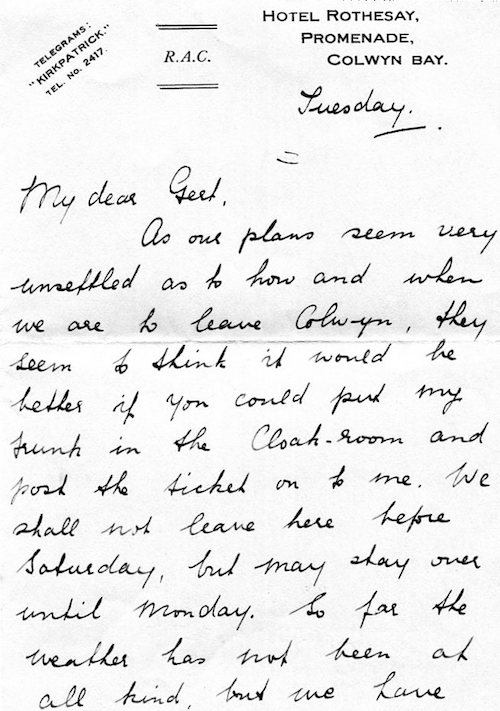 TELEGRAMS:
"KIRKPATRICK."
TEL. No. 2417.
R.A.C.
HOTEL ROTHESAY,
PROMENADE,
COLWYN BAY.
Tuesday.
My dear Geet,
As our plans seem very
unsettled as to how and when
we are to leave Colwyn, they
seem to think it would be
better if you could put my
trunk in the Cloak-room and
post the ticket on to me. We
shall not leave here before
Saturday, but may stay over
until Monday. So far the
weather has not been at
all kind, but we have